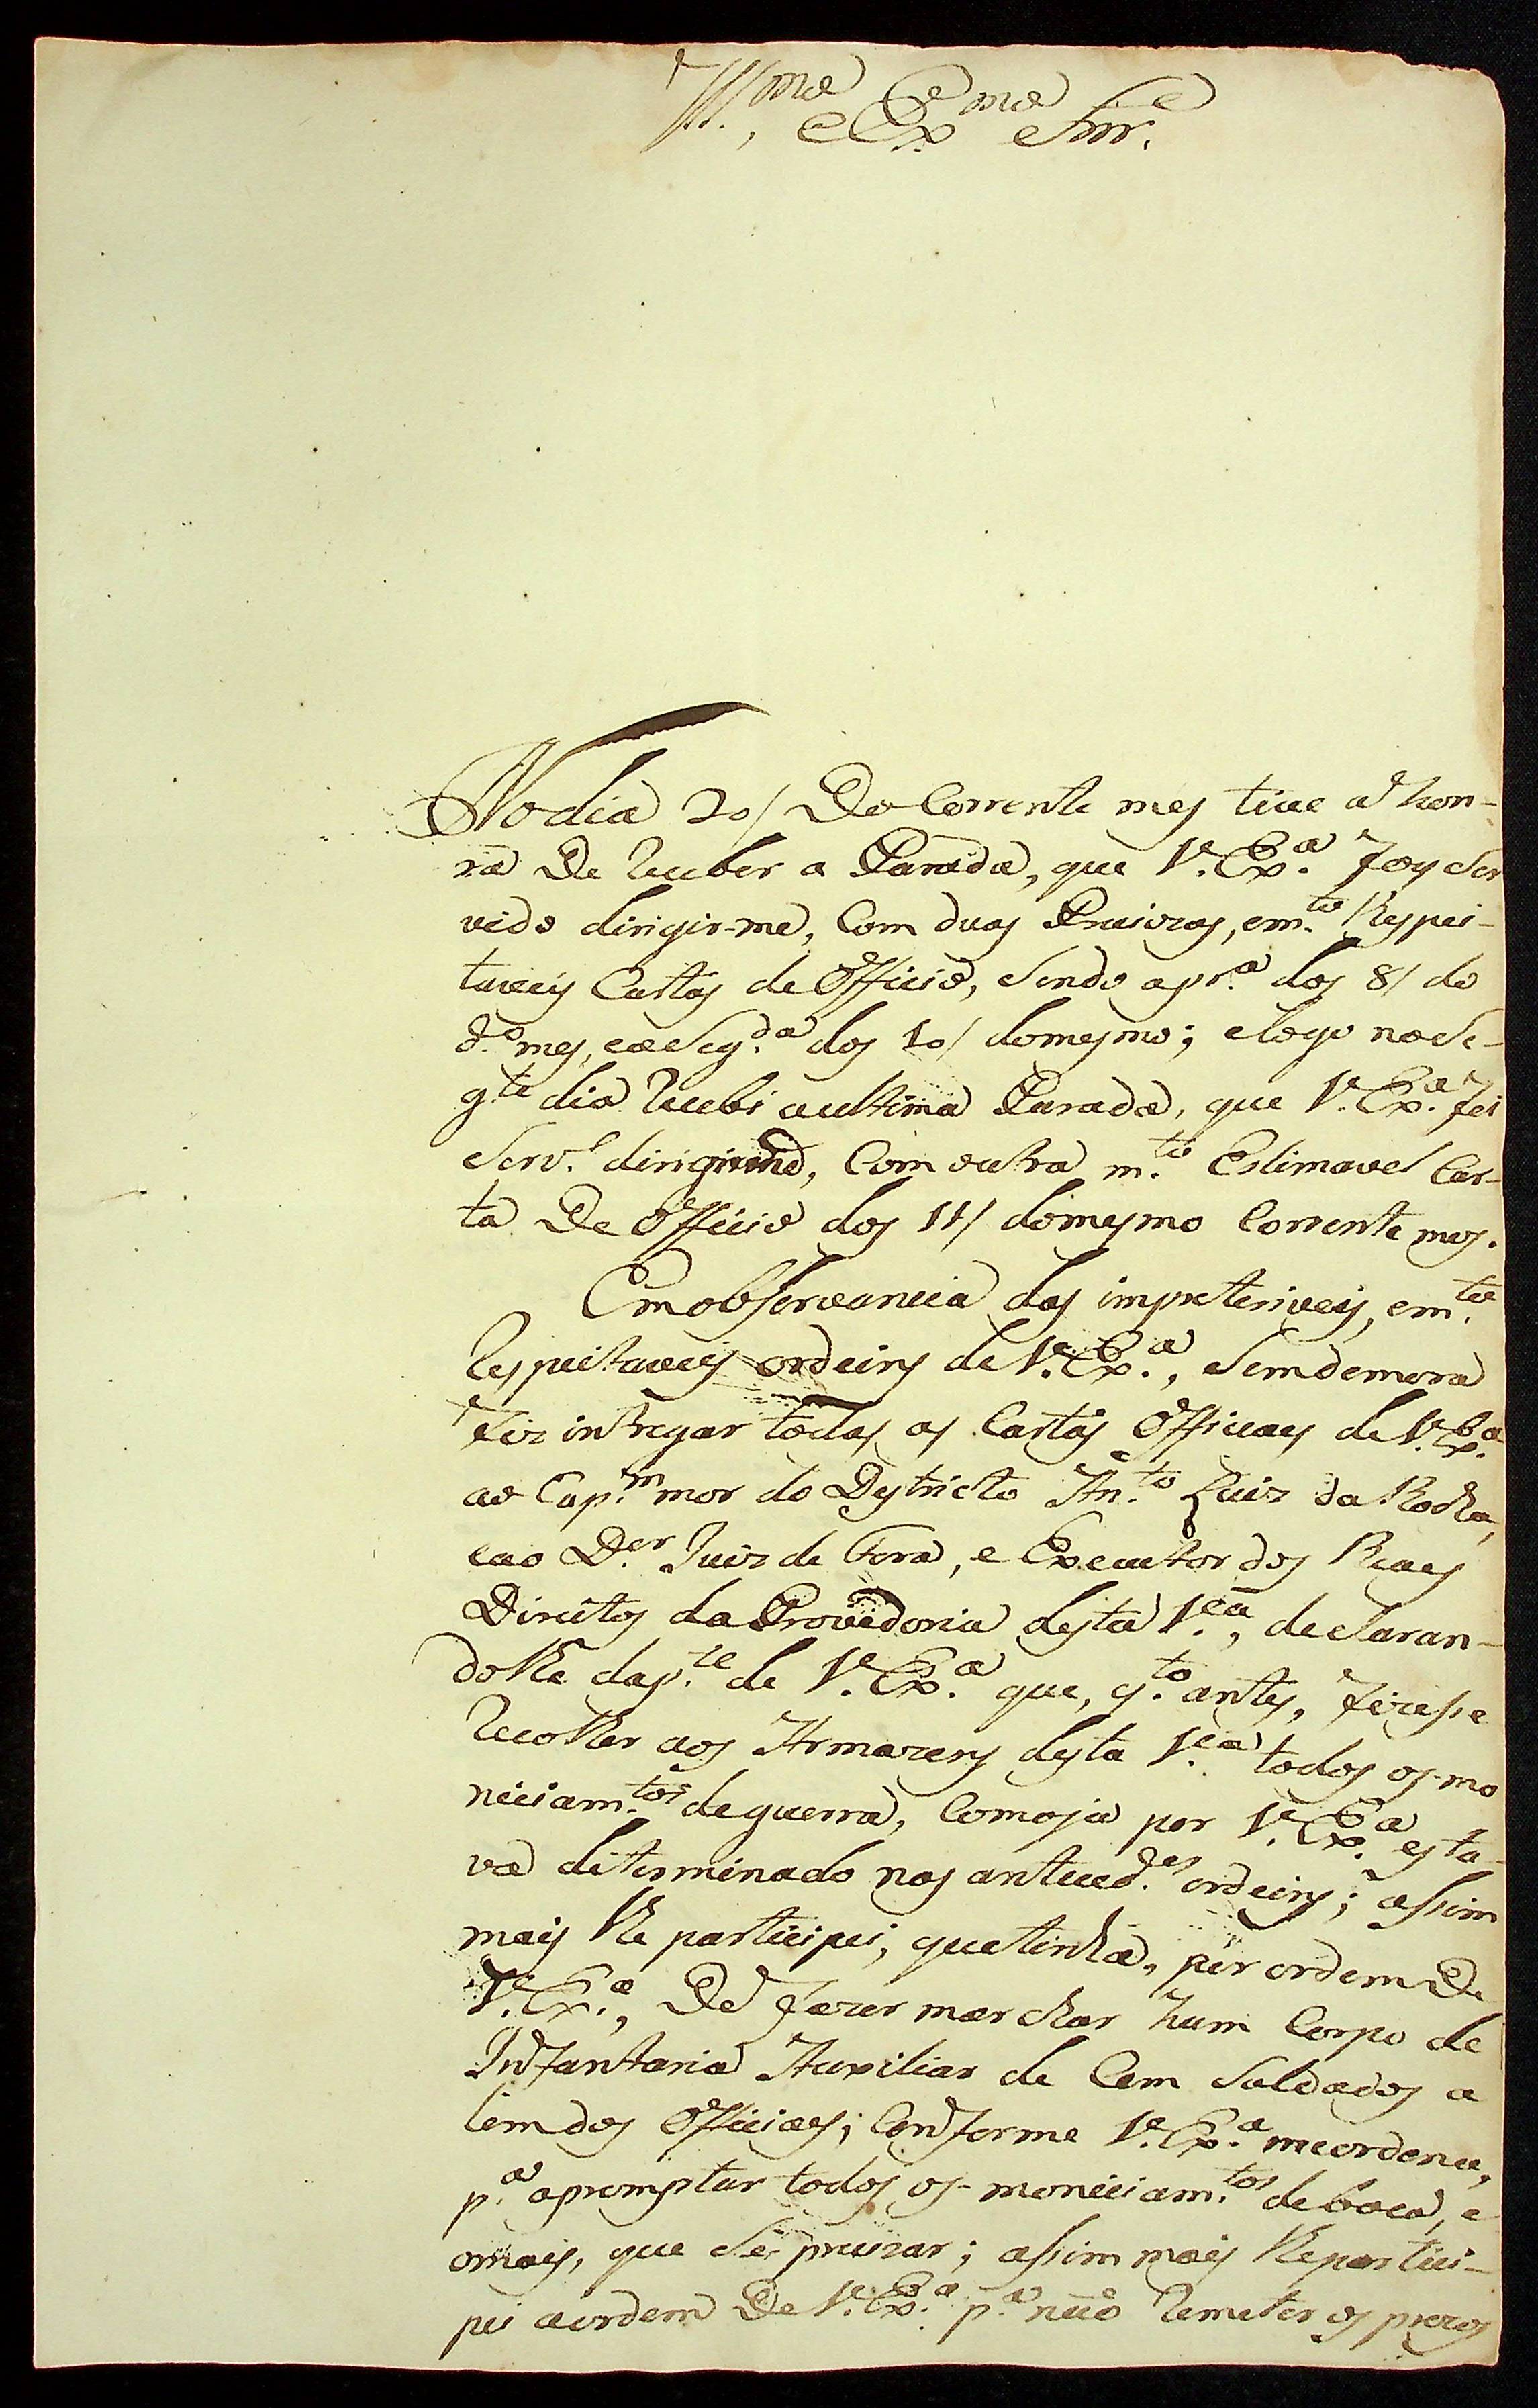 Ill.mo, e Ex.mo Snr.e
No dia 20/ Do Corrente mes tive a hon-
ra De receber a Parada, que V.Ex.a foy Ser
vido dirigir-me, Com duas Precizas, e m.to Respei-
taveis Cartas de Officio, Sendo a pr.a dos 8/ do
d.o mes, e a Seg.da dos 10/ do mesmo; e logo no Se-
g.te dia recebi a ultima Parada, que V.Ex.a foi
Serv.o dirigirme, Com outra m.to Estimavel Car-
ta De Officio dos 11/ do mesmo Corrente mes.
Em observancia das impreteriveis, e m.to
respeitaveis ordeins de V.Ex.a, Sem demora
fiz intregar todas as Cartas Officiaes de V.Ex.a
ao Cap.m mor do Destricto An.to Luiz da Rocha,
e ao D.or Juiz de Fora, e Executor dos Reaes
Direitos da Provedoria desta V.a, declaran-
dolhe da p.te de V.Ex.a que, q.to antes, fizesse
recolher aos Armazens desta V.a todos os mo
niciam.tos de guerra, Como ja por V.Ex.a esta-
va diterminado nas anteced.es ordeins; assim
mais lhe participei, que tinha, por ordem De
V.Ex.a, De fazer marchar hum Corpo de
Infantaria Auxiliar de Cem Soldados a
lem dos Officiaes; Conforme V.Ex.a me ordena,
p.a apromptar todos os moniciam.tos de boca, e
o mais, que Se precizar; assim mais lhe partici-
pei a ordem De V.Ex.a p.a não remeter os prezos